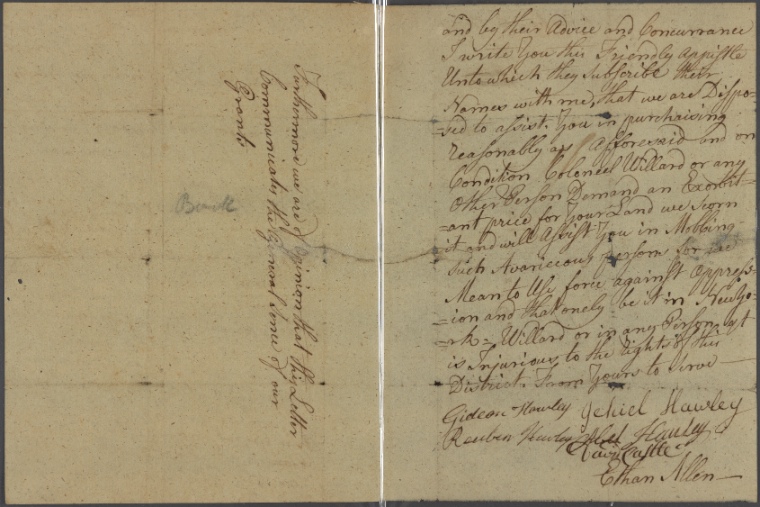 Furthermore we are of Opinion that this Letter
Communicates the General Sense of our
Grants
and by their Advice and Concurrance
I write You this Friendly Appistle
Unto which they Subscribe their
Names with me, that we are Dispo-
=sed to assist You in purchaising
reasonably as Afforesaid and on
Condition Colonel Willard or any
Other Person Demand an Exorbit-
=ant price for Your Land we scorn
it and will Assist You in Mobbing
such Avaricious persons for we
Mean to Use force against Oppress-
=ion and that onely be it in New Yo-
=rk = Willard or in any Person it
is Injurious to the rights of this
District From Yours to Serve
Gideon Hawley Jehiel Hawley
Reuben Hawley Abel Hawley
Castle
Ethan Allen